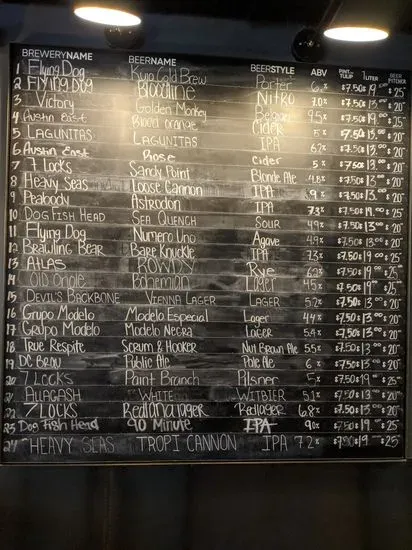 BREWERYNAME BEERNAME BEERSTYLE ABV PINT-TULIP 1 LITER BEER PITCHER
1 Flying Dog Kujo Cold Brew Porter $7.50 $19.00 $25
2 FLYING DOG Bloodline Nitro 7.0% $7.50 $13.00 $20
3 Victory Golden Monkey Belgian 9.5% $7.50 $19.00 $25
4 Austin East Blood orange Cider 5% $7.50 $13.00 $20
5 LAGUNITAS LAGUNITAS IPA 6.2% $7.50 $13.00 $20
6 Austin East Rose cider 5% $7.50 $13.00 $20
7 7 Locks Sandy Point Blonde Ale 4.8% $7.50 $13.00 $20
8 Heavy Seas Loose Cannon IPA $7.50 $13.00 $20
9 Peabody Astrodon IPA 7.3% $7.50 $13.00 $20
10 DOG FISH HEAD SEA QUENCH SOUR 4.9% $7.50 $19.00 $25
11 Flying Dog Numero Uno Agave 4.9% $7.50 $13.00 $20
12 Brawling Bear Bare Knuckle IPA 7.3% $7.50 $19.00 $25
13 ATLAS ROWDY Rye 6.2% $7.50 $19.00 $25
14 Old Oriole Bohemian Lager 4.5% $7.50 $13.00 $20
15 DEVIL'S BACKBONE VIENNA LAGER LAGER 5.2% $7.50 $13.00 $20
16 Grupo Modelo Modelo Especial Lager 4.4% $7.50 $13.00 $20
17 GRUPO MODELO Modelo Negra Lager 5.4% $7.50 $13.00 $20
18 True Respite SCRUM & HOOKER Nut Brown Ale 5.5% $7.50 $13.00 $20
19 DC BRAU Public Ale Pale Ale 6% $7.50 $13.00 $20
20 7 LOCKS Paint Branch Pilsner 5% $7.50 $19.00 $25
21 ALLAGASH WHITE WITBIER 5.1% $7.50 $13.00 $20
22 7 LOCKS Redland lager Redlager 6.8% $7.50 $13.00 $20
23 Dog Fish Head 90 Minute IPA 9.0% $7.50 $19 $25
24 HEAVY SEAS TROPI CANNON IPA 7.2% $7.50 $19 $25